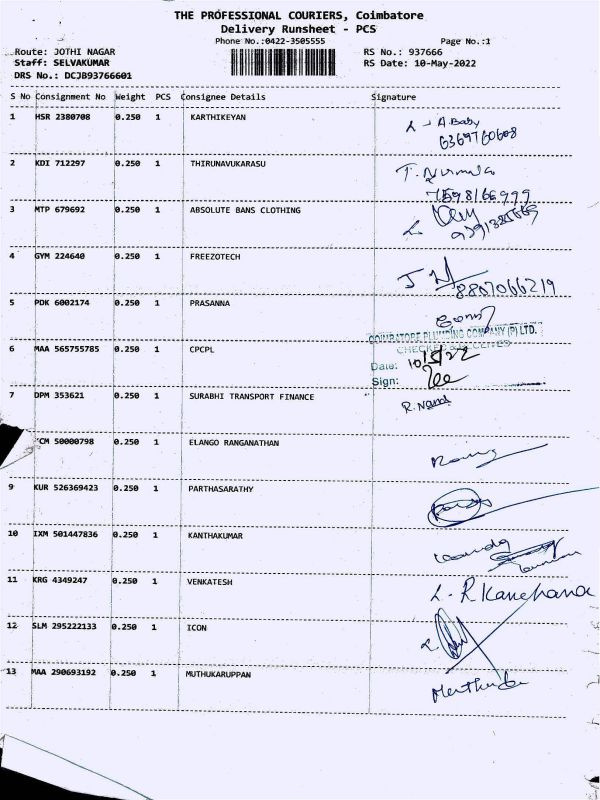 THE PROFESSIONAL COURIERS, Coimbatore
Delivery Runsheet - PCS
Phone No.:0422-3505555
Page No.:1
Route: JOTHI NAGAR
RS No.: 937666
Staff: SELVAKUMAR
RS Date: 10-May-2022
DRS No.: DCJB93766601
S No Consignment No Weight PCS Consignee Details Signature
1 HSR 2380708 0.250 1 KARTHIKEYAN A. Baby
6369760608
2 KDI 712297 0.250 1 THIRUNAVUKARASU T. Nirmala
7598166999
3 MTP 679692 0.250 1 ABSOLUTE BANS CLOTHING
4 GYM 224640 0.250 1 FREEZOTECH
8807066219
5 PDK 6002174 0.250 1 PRASANNA
COIMBATORE PLUMBING COMPANY (P) LTD.
CHECKED & RECEIVED
6 MAA 565755785 0.250 1 CPCPL
Date: 10/5/22
Sign:
7 DPM 353621 0.250 1 SURABHI TRANSPORT FINANCE R. Nand
CM 50000798 0.250 1 ELANGO RANGANATHAN
9 KUR 526369423 0.250 1 PARTHASARATHY
10 IXM 501447836 0.250 1 KANTHAKUMAR
11 KRG 4349247 0.250 1 VENKATESH R Kanchana
12 SLM 295222133 0.250 1 ICON
13 MAA 290693192 0.250 1 MUTHUKARUPPAN